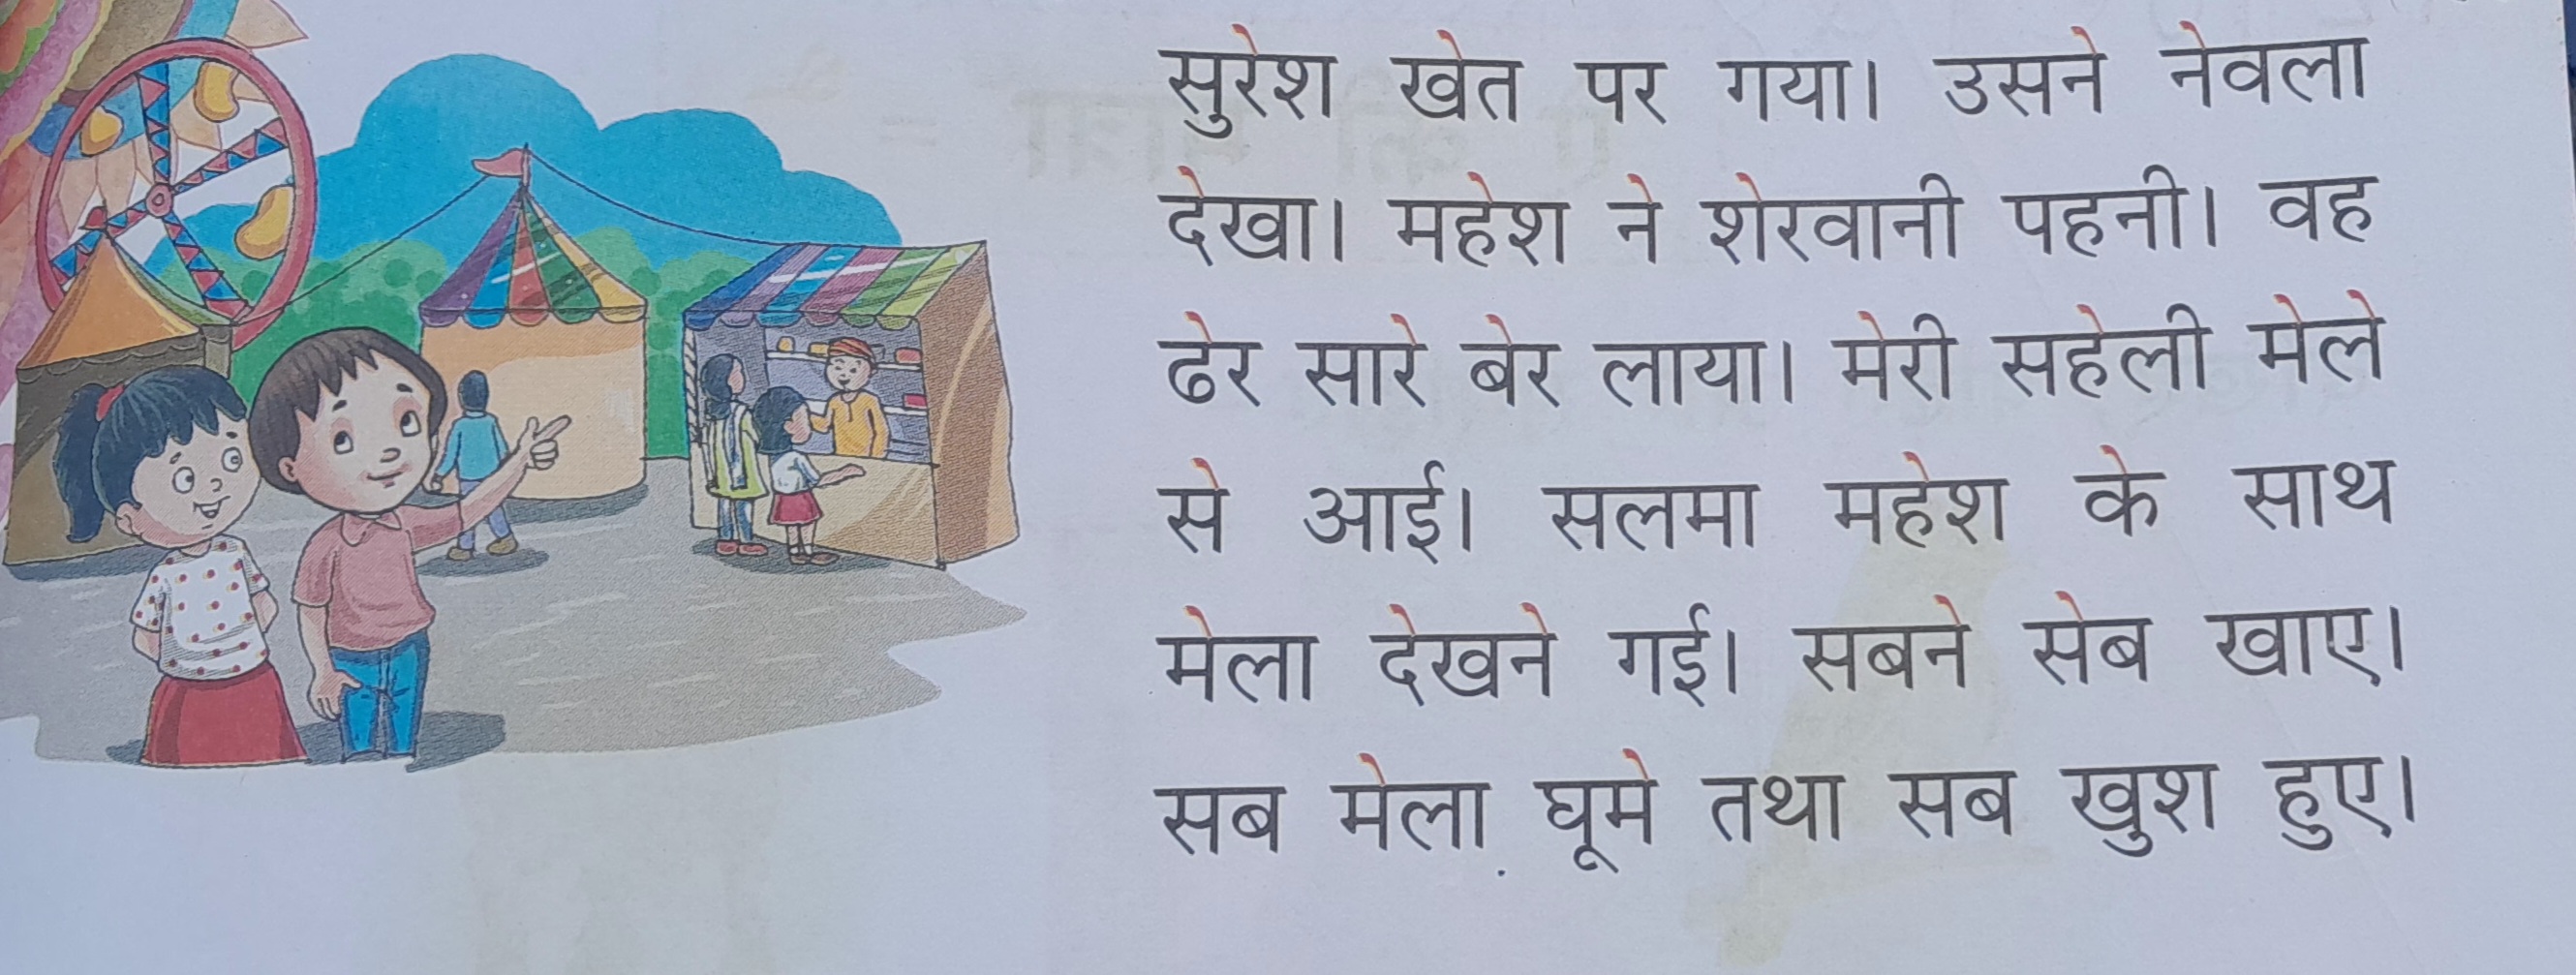 सुरेश खेत पर गया। उसने नेवला
देखा। महेश ने शेरवानी पहनी। वह
ढेर सारे बेर लाया। मेरी सहेली मेले
से आई। सलमा महेश के साथ
मेला देखने गई। सबने सेब खाए।
सब मेला घूमे तथा सब खुश हुए।